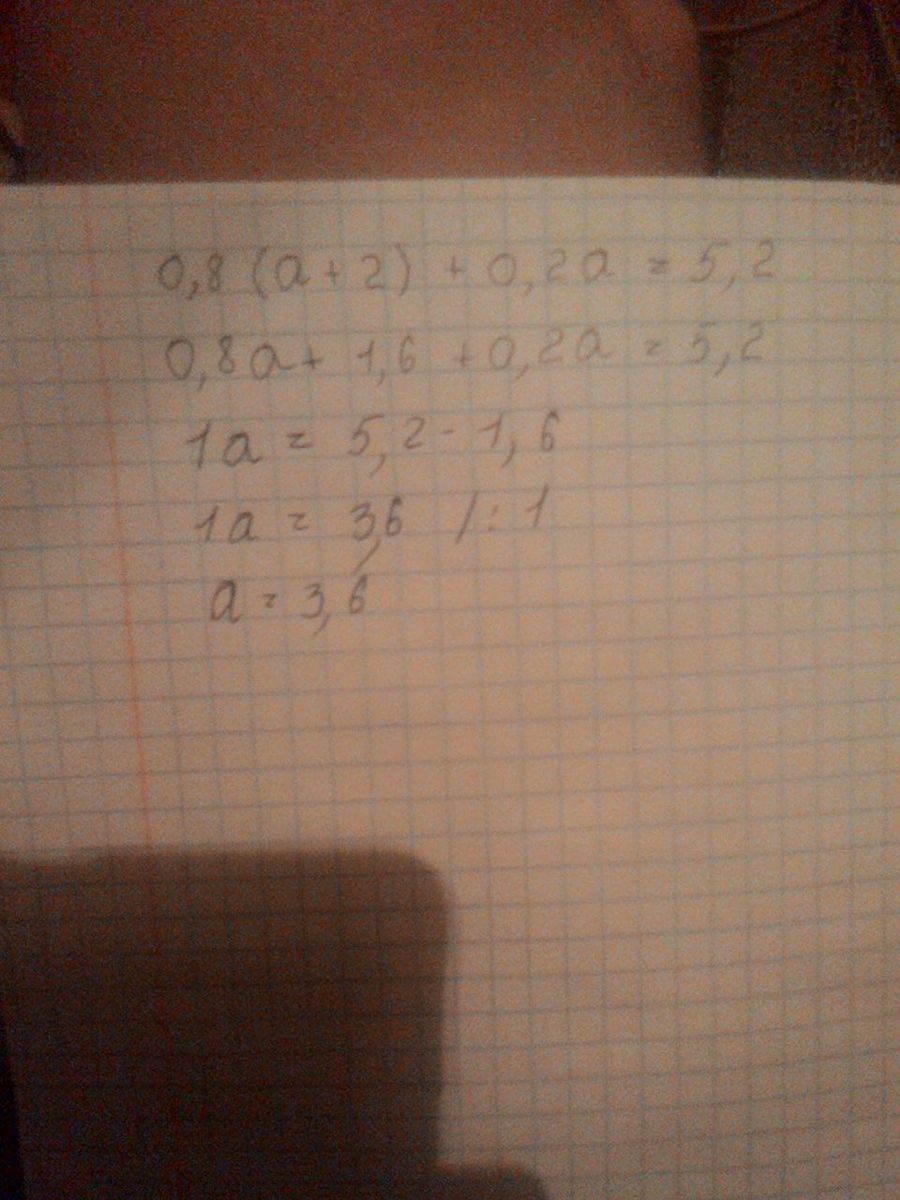 0,8 (a + 2) + 0,2a = 5,2
0,8a + 1,6 + 0,2a = 5,2
1a = 5,2 - 1,6
1a = 3,6 /: 1
a = 3,6